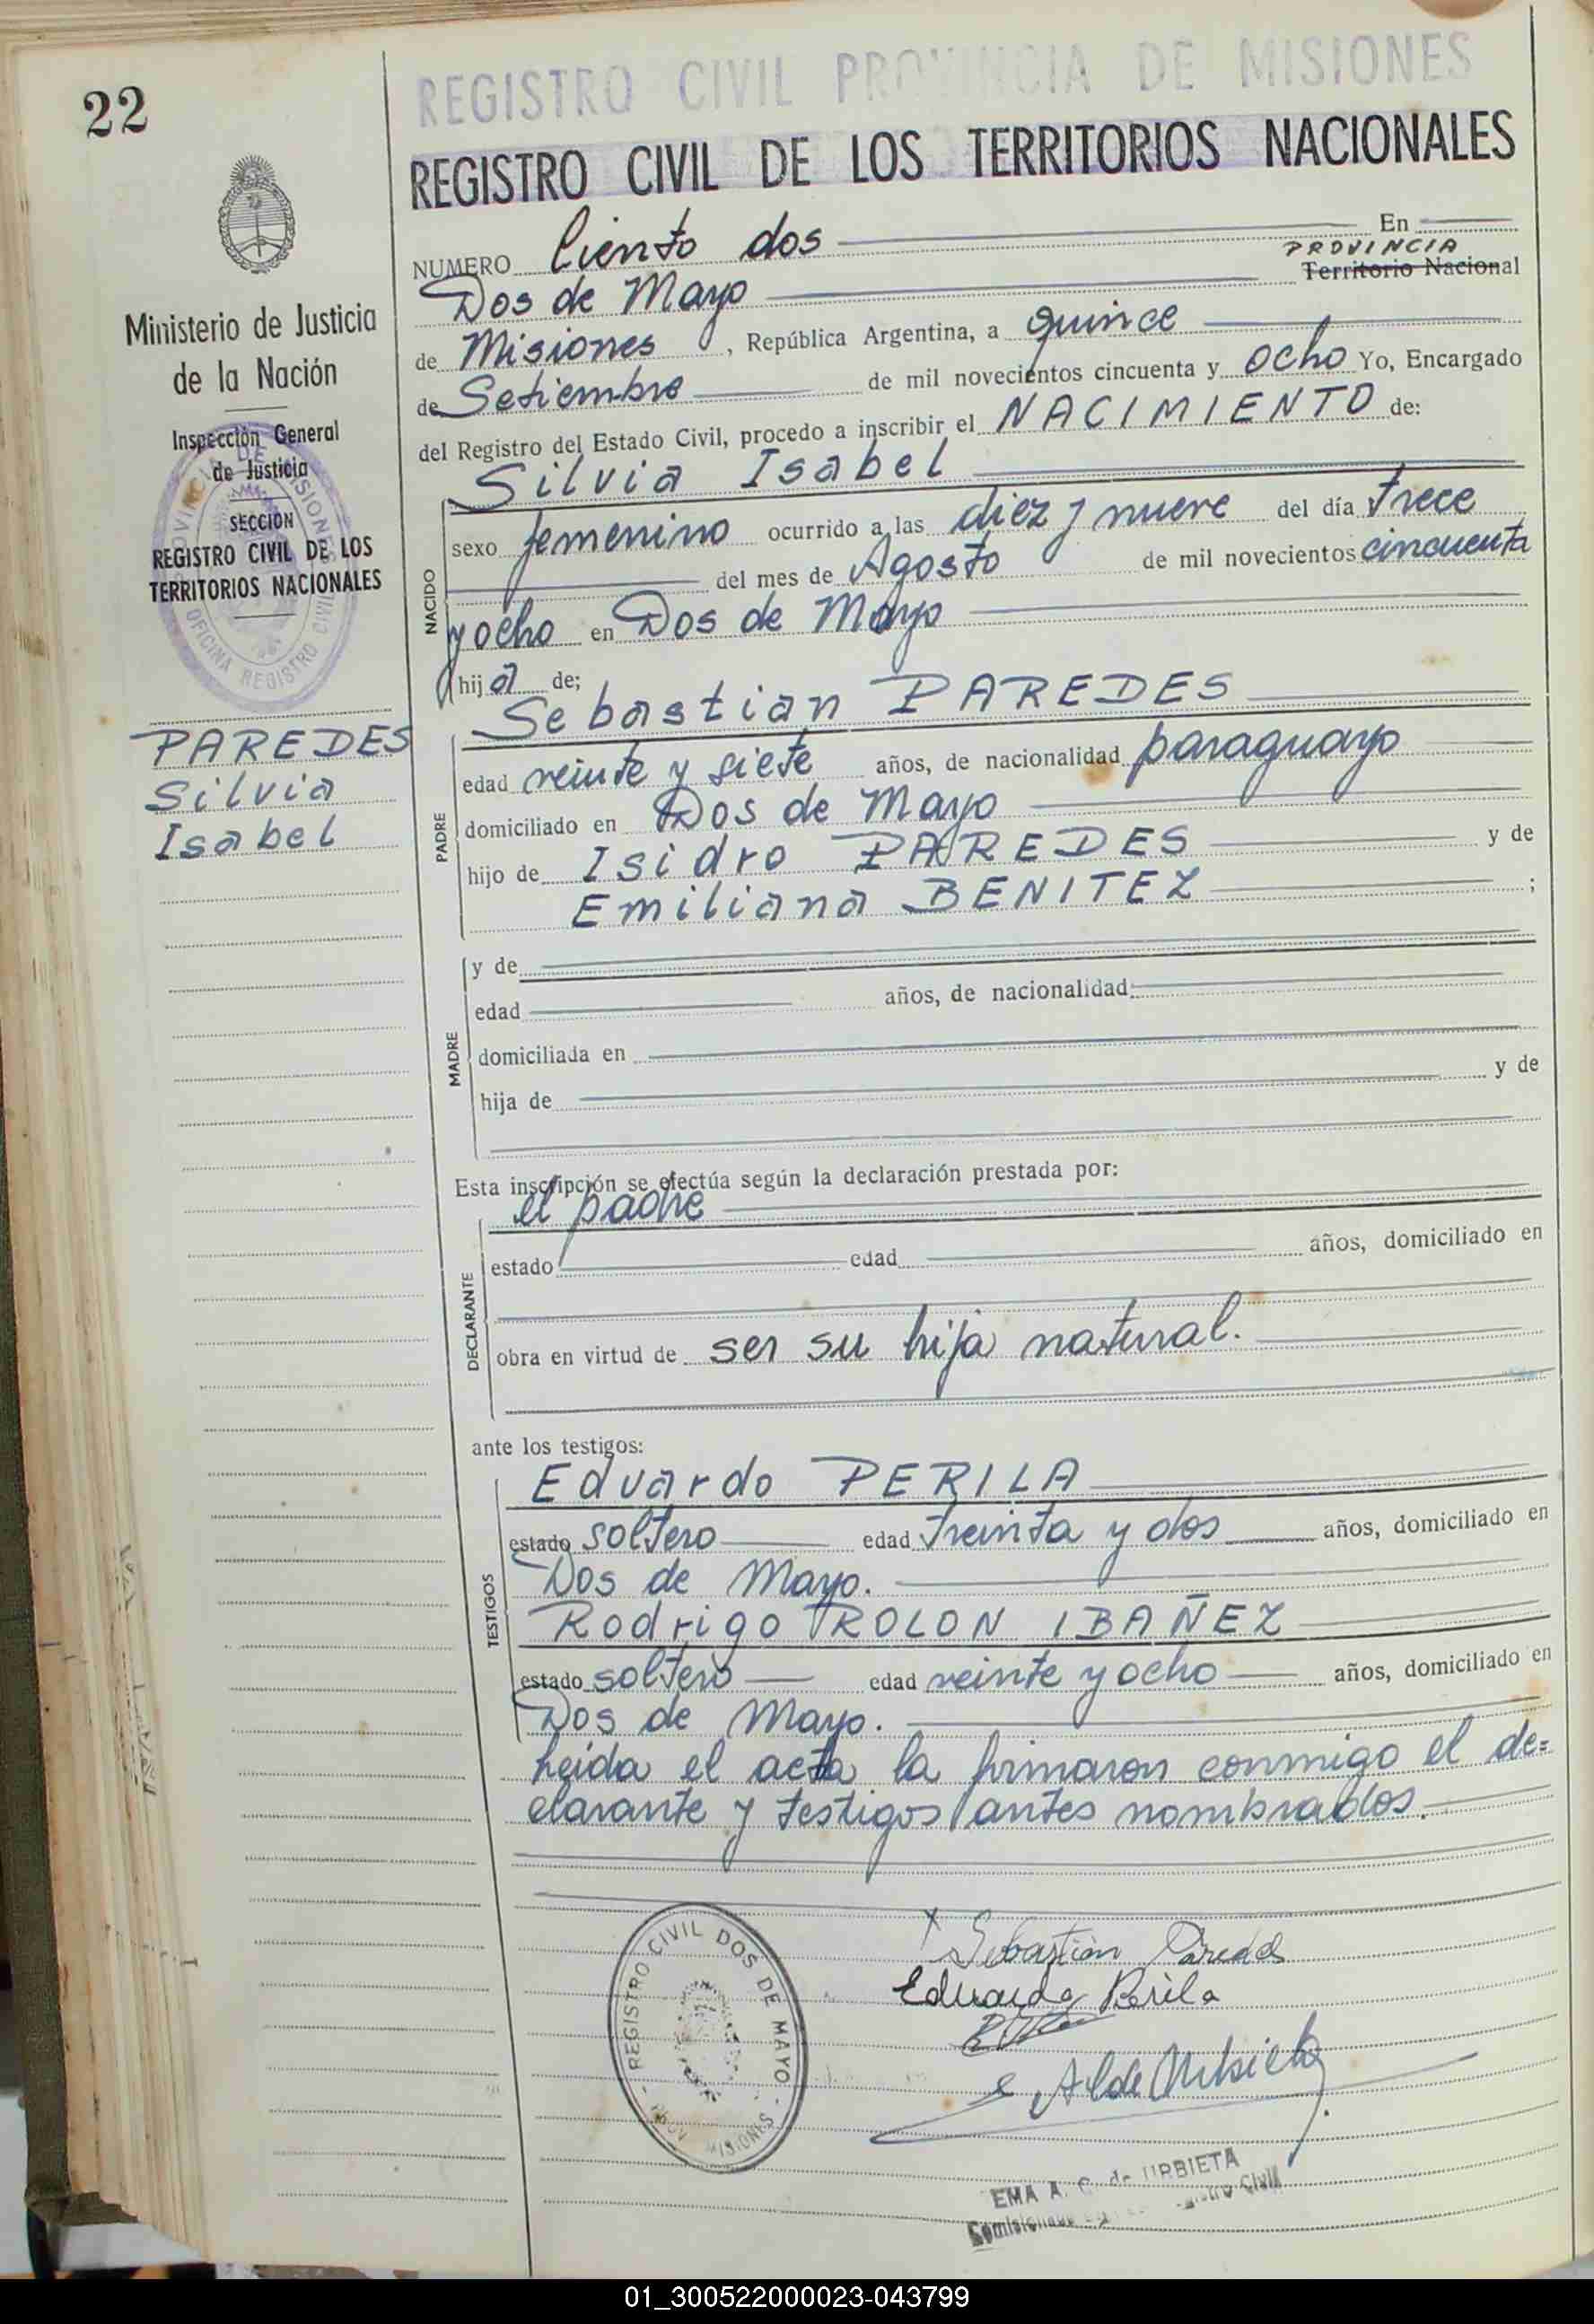 22
REGISTRO CIVIL PROVINCIA DE MISIONES
REGISTRO CIVIL DE LOS TERRITORIOS NACIONALES
Ministerio de Justicia
de la Nación
Inspección General
de Justicia
SECCION
REGISTRO CIVIL DE LOS
TERRITORIOS NACIONALES
OFICINA REGISTRO CIVIL
PAREDES
Silvia
Isabel
NUMERO Ciento dos En
PROVINCIA
Dos de Mayo Territorio Nacional
de Misiones, República Argentina, a quince
de Setiembre de mil novecientos cincuenta y ocho Yo, Encargado
del Registro del Estado Civil, procedo a inscribir el NACIMIENTO de:
Silvia Isabel
NACIDO
sexo femenino ocurrido a las diez y nueve del día trece
del mes de Agosto de mil novecientos cincuenta
y ocho en Dos de Mayo
hija de;
Sebastian PAREDES
PADRE
edad veinte y siete años, de nacionalidad paraguayo
domiciliado en Dos de Mayo
hijo de Isidro PAREDES y de
Emiliana BENITEZ ;
MADRE
y de
edad años, de nacionalidad
domiciliada en
hija de y de
Esta inscripción se efectúa según la declaración prestada por:
el padre
DECLARANTE
estado edad años, domiciliado en
obra en virtud de ser su hija natural.
ante los testigos:
Eduardo PERILA
TESTIGOS
estado soltero edad treinta y dos años, domiciliado en
Dos de Mayo.
Rodrigo ROLON IBAÑEZ
estado soltero edad veinte y ocho años, domiciliado en
Dos de Mayo.
Leida el acta la firmaron conmigo el de=
clarante y testigos antes nombrados.
REGISTRO CIVIL DOS DE MAYO - PROV. MISIONES -
x Sebastián Paredes
Eduardo Perila
EMA A. C. de URBIETA
01_300522000023-043799